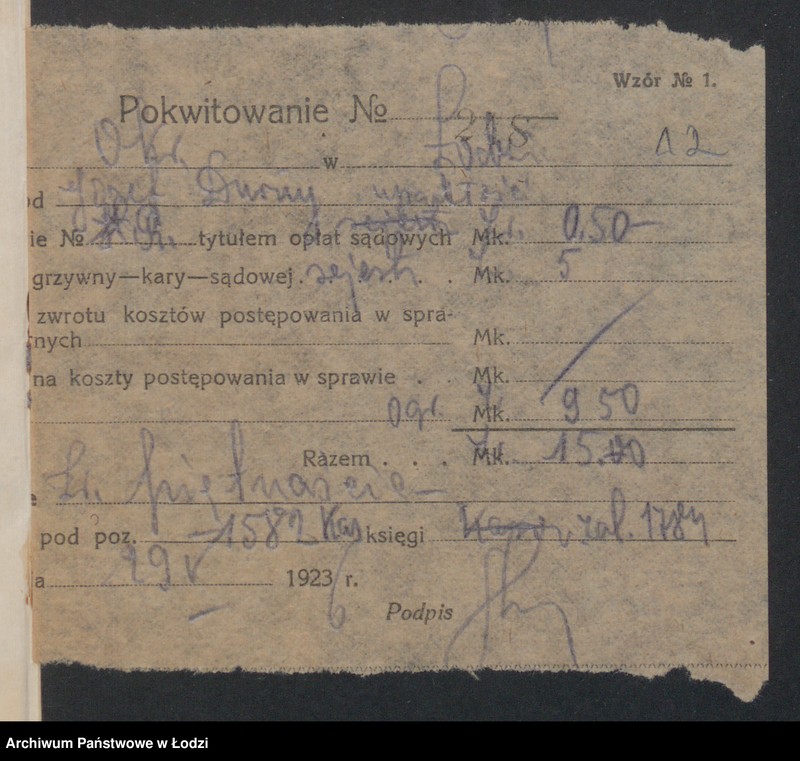 Wzór № 1.
Pokwitowanie № 215
12
Okr. w Łodzi
od Józef Durny upadłość
ie № tytułem opłat sądowych Mk. 0,50
grzywny—kary—sądowej . rejestr . . Mk. 5
zwrotu kosztów postępowania w spra-
rnych Mk.
na koszty postępowania w sprawie . . Mk.
ogr. Mk. 9 50
Razem . . . Mk. 15.00
e Zł. piętnaście
pod poz. 1582 Kas księgi zal. 1784
a 29 V 1923 6 r.
Podpis
Archiwum Państwowe w Łodzi